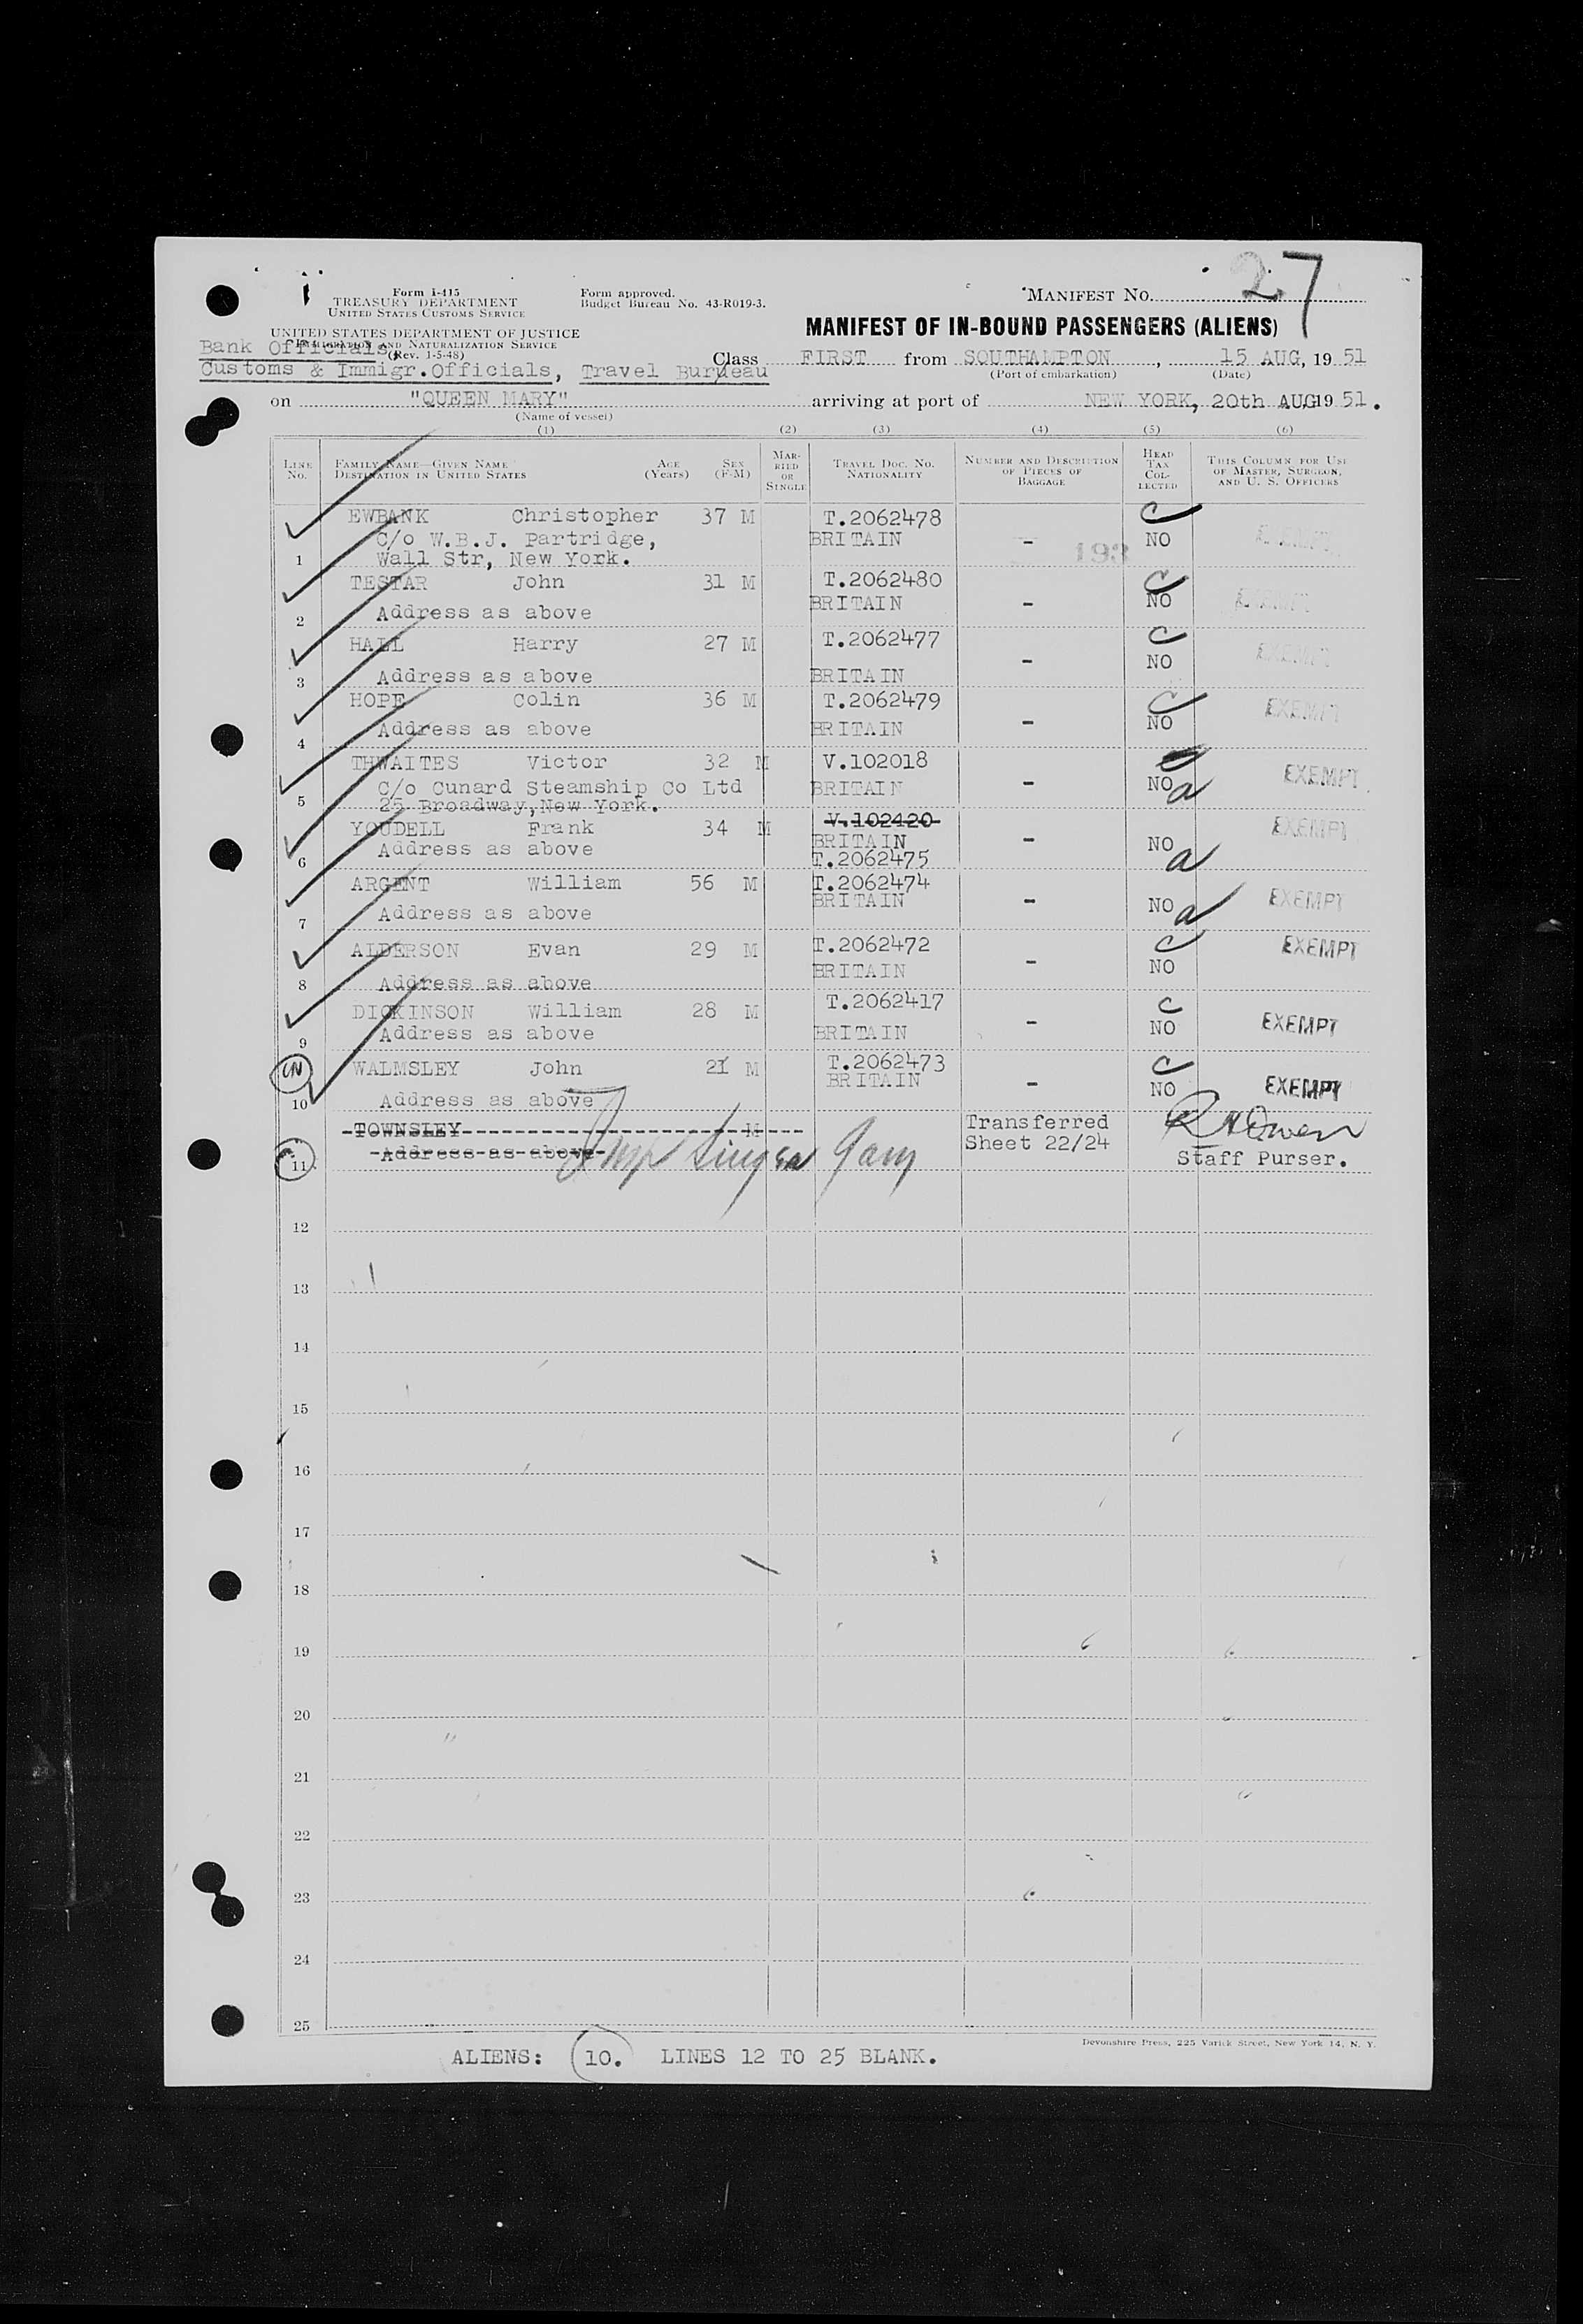 27
Form I-415
TREASURY DEPARTMENT
UNITED STATES CUSTOMS SERVICE
Form approved.
Budget Bureau No. 43-R019-3.
MANIFEST NO.
UNITED STATES DEPARTMENT OF JUSTICE
IMMIGRATION AND NATURALIZATION SERVICE
(Rev. 1-5-48)
MANIFEST OF IN-BOUND PASSENGERS (ALIENS)
Bank Officials
Customs & Immigr.Officials, Travel Bureau
Class FIRST from SOUTHAMPTON, 15 AUG, 1951
(Port of embarkation) (Date)
on "QUEEN MARY" arriving at port of NEW YORK, 20th AUG, 1951.
(Name of vessel)
(1) (2) (3) (4) (5) (6)
LINE NO. FAMILY NAME—GIVEN NAME DESTINATION IN UNITED STATES AGE (Years) SEX (F-M) MARRIED OR SINGLE TRAVEL DOC. NO. NATIONALITY NUMBER AND DESCRIPTION OF PIECES OF BAGGAGE HEAD TAX COLLECTED THIS COLUMN FOR USE OF MASTER, SURGEON, AND U. S. OFFICERS
EWBANK Christopher 37 M T.2062478 C
C/o W.B.J. Partridge, BRITAIN - 193 NO EXEMPT
1 Wall Str, New York.
TESTAR John 31 M T.2062480 C
2 Address as above BRITAIN - NO EXEMPT
HALL Harry 27 M T.2062477 C
3 Address as above BRITAIN - NO EXEMPT
HOPE Colin 36 M T.2062479 C
4 Address as above BRITAIN - NO EXEMPT
THWAITES Victor 32 M V.102018
C/o Cunard Steamship Co Ltd BRITAIN - NO a EXEMPT
5 25 Broadway, New York.
YOUDELL Frank 34 M V.102420 EXEMPT
Address as above BRITAIN - NO a
6 T.2062475
ARGENT William 56 M T.2062474
BRITAIN - NO a EXEMPT
7 Address as above
ALDERSON Evan 29 M T.2062472 C EXEMPT
BRITAIN - NO
8 Address as above
DICKINSON William 28 M T.2062417 C
9 Address as above BRITAIN - NO EXEMPT
WALMSLEY John 21 M T.2062473 C
BRITAIN - NO EXEMPT
10 Address as above
TOWNSLEY M Transferred
11 Address as above Sheet 22/24
R H Owen
Staff Purser.
12
13
14
15
16
17
18
19
20
21
22
23
24
25
Devonshire Press, 225 Varick Street, New York 14, N. Y.
ALIENS: 10. LINES 12 TO 25 BLANK.